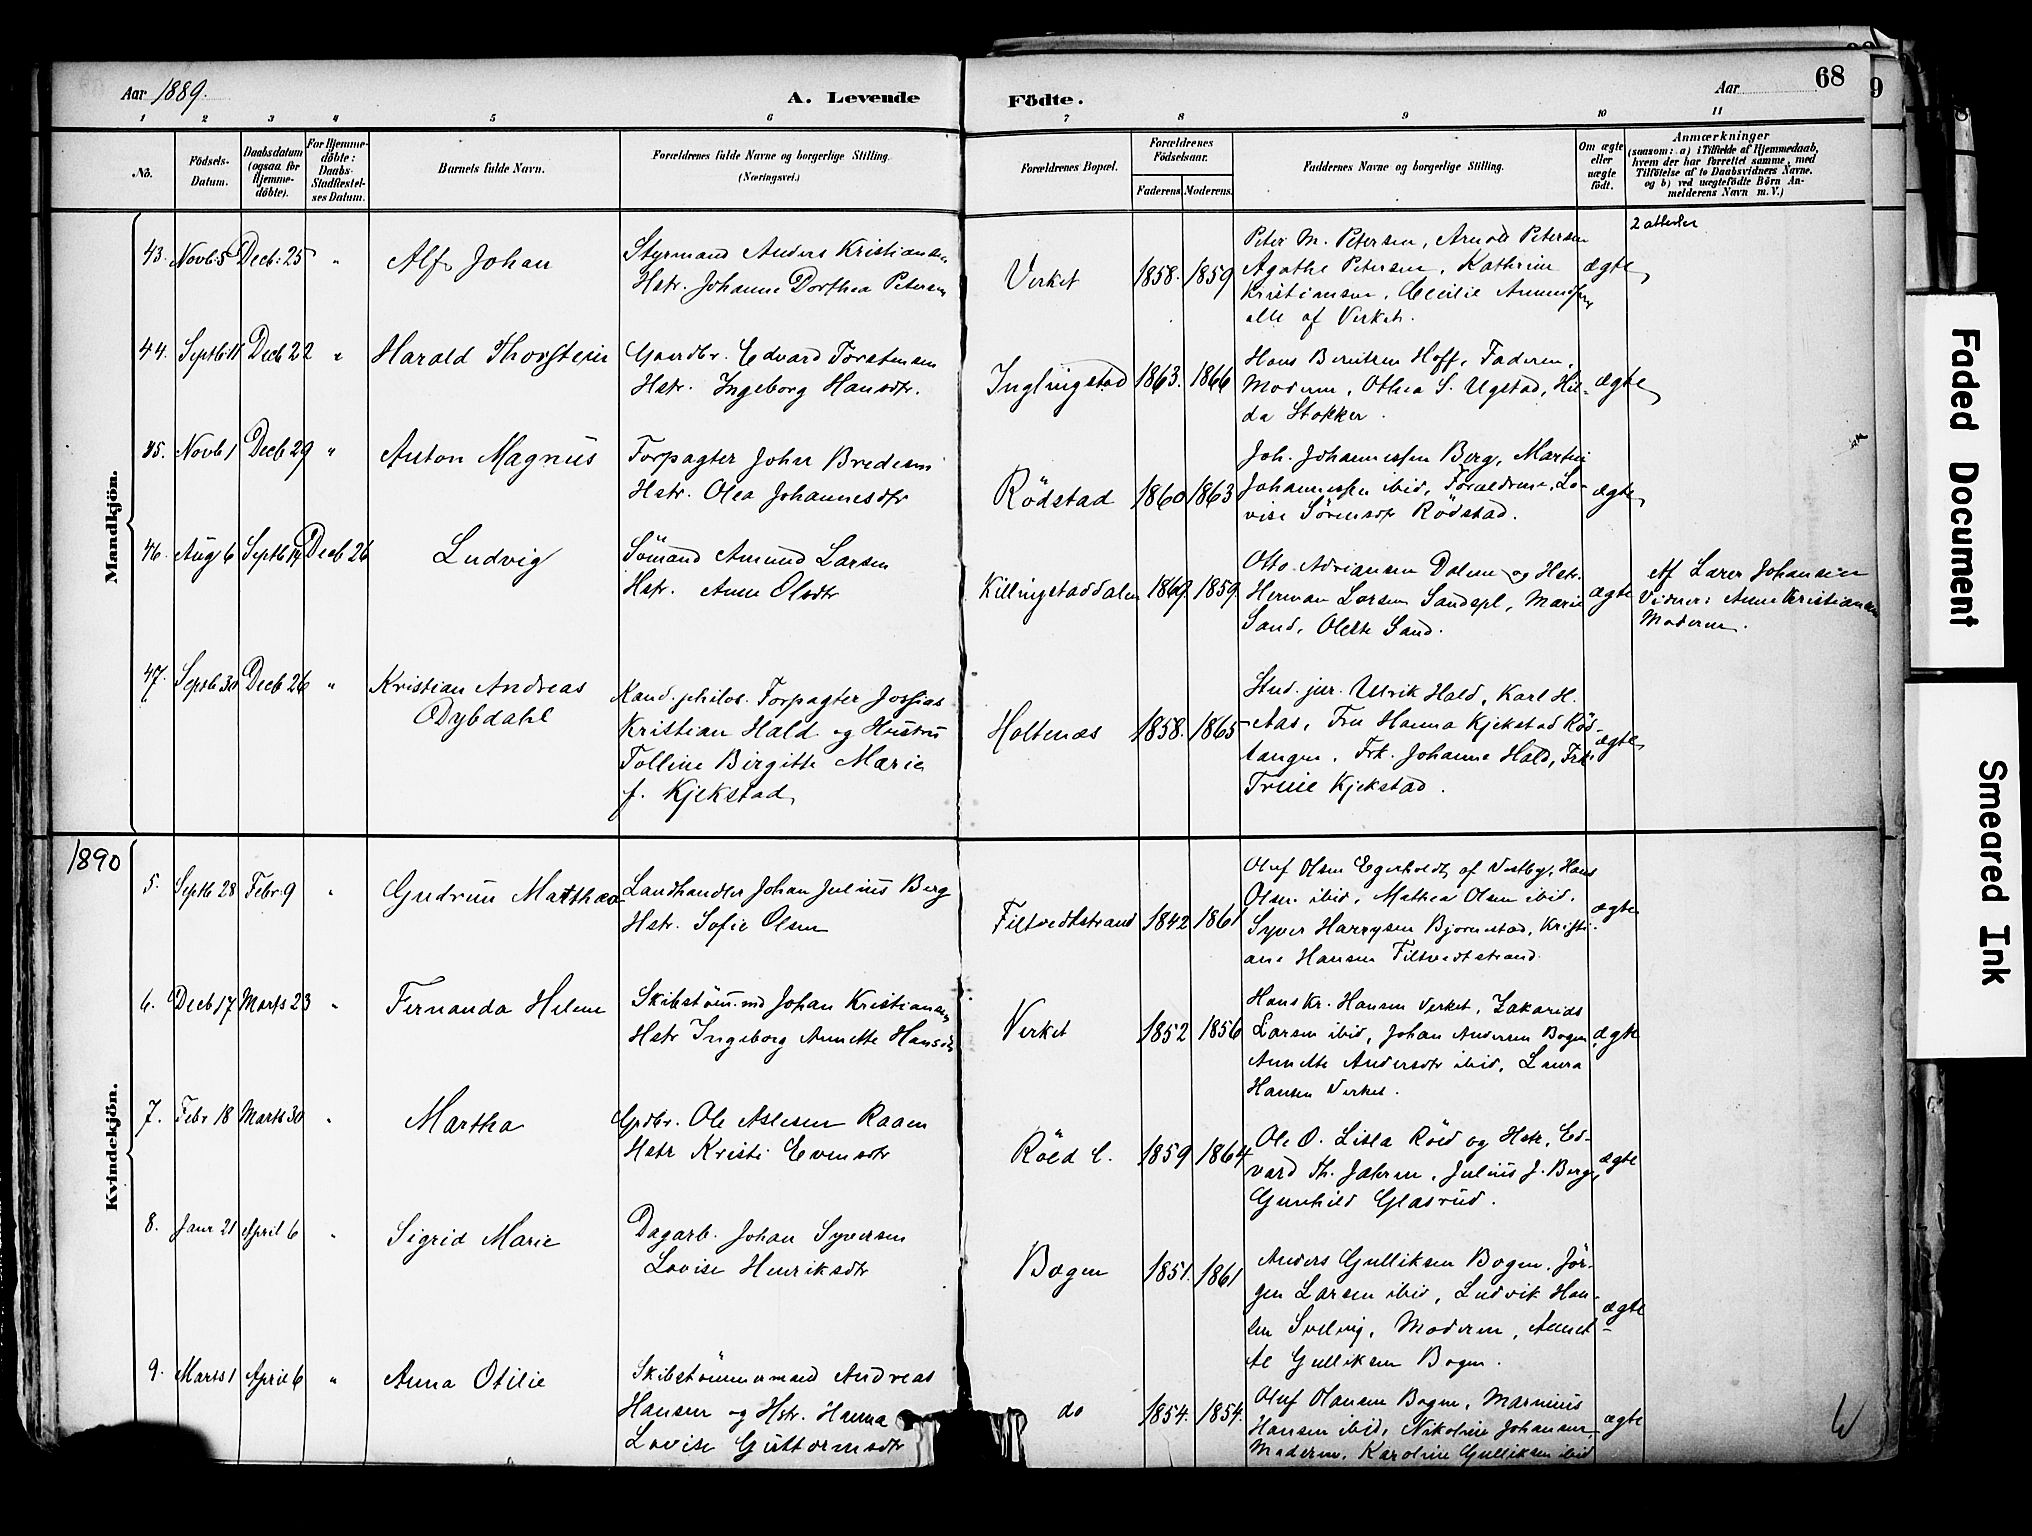 Aar 1889.
A. Levende Födte.
Aar 68
9
1 2 3 4 5 6 7 8 9 10 11
No.
Födsels-
Datum.
Daabsdatum
(ogsaa for
Hjemme-
döbte).
For Hjemme-
döbte:
Daabs-
Stadfæstel-
ses Datum.
Barnets fulde Navn.
Forældrenes fulde Navne og borgerlige Stilling.
(Næringsvei.)
Forældrenes Bopæl.
Forældrenes
Födselsaar.
Faderens Moderens.
Faddernes Navne og borgerlige Stilling.
Om ægte
eller
uægte
födt.
Anmærkninger
(saasom: a) i Tilfælde af Hjemmedaab,
hvem der har forrettet samme, med
Tilföielse af to Daabsvidners Navne.
og b) ved uægtefödte Börn An-
melderens Navn m. V.)
Mandkjön.
43. Novb. 5 Decb. 25 " Alf Johan
Styrmand Anders Kristiansen
Hstr. Johanne Dorthea Petersen
Verket 1858. 1859
Peter M. Petersen, Arnolt Petersen
Agathe Petersen, Kathrine
Kristiansen, Cecilie Amundsen
alle af Verket.
ægte
2 attester
44. Septb 18 Decb 22 " Harald Thorstein
Gaardbr. Edvard Torstensen
Hstr. Ingeborg Hansdtr.
Inglingstad 1863. 1866
Hans Berntsen Hoff, Faderen,
Moderen, Othea S. Ugstad, Hil-
da Stokker.
ægte
45. Novb 1 Decb 29 " Anton Magnus
Forpagter Johan Bredesen
Hstr. Olea Johannesdtr
Rödstad 1860 1863
Joh. Johannessen Berg, Martin
Johannessen ibid, Forældrene, Lo-
vise Sörensdtr Rödstad.
ægte
46. Aug 6 Septb 14 Decb 26 Ludvig
Sömand Amund Larsen
Hstr. Anne Olsdtr
Killingstaddalen 1869. 1859.
Otto Adriansen Dalen og Hstr.
Herman Larsen Sandspl, Marie
Sand, Olette Sand.
ægte
Af Larer Johansen
Vidner: Anne Kristiansen
Moderen.
47. Septb 30 Decb 26 " Kristian Andreas
Dybdahl
Kand. philos. Forpagter Jossias
Kristian Hald og Hustru
Tolline Birgitte Marie
f. Kjekstad
Holtenæs 1858. 1865
Stud. jur. Ulrik Hald, Karl H.
Aas, Fru Hanna Kjekstad Röd-
tangen, Frk. Johanne Hald, Frk.
Trine Kjekstad.
ægte
1890
Kvindekjön.
5. Septb 28 Febr. 9 " Gudrun Marthea
Landhandler Johan Julius Berg
Hstr. Sofie Olsen
Filtvedtstrand 1842 1861
Oluf Olsen Egerholdt af Vestby, Hans
Olsen ibid, Mathea Olsen ibid,
Syver Harrysen Bjørnestad, Kristi-
ane Hansen Filtvedtstrand.
ægte
6. Decb 17 Marts 23 " Fernanda Helene
Skibstöm.md Johan Kristiansen
Hstr Ingeborg Annette Hansdtr
Verket 1852 1856
Hans Kr. Hansen Verket, Zakarias
Larsen ibid, Johan Andersen Bogen
Annette Andersdtr ibid, Laura
Hansen Verket.
ægte
7. Febr 18 Marts 30 " Martha
Grdbr. Ole Aslesen Raaen
Hstr Kristi Evensdtr
Röed C. 1859 1864
Ole O. Lilla Röed og Hstr, Ed-
vard Th. Jahren, Julius J. Berg,
Gunhild Glasrud.
ægte
8. Janr 21 April 6 " Sigrid Marie
Dagarb. Johan Syversen
Lovise Henriksdtr
Bogen 1851. 1861
Anders Gulliksen Bogen, Jör-
gen Larsen ibid, Ludvik Han-
sen Svelvig, Moderen, Annet-
te Gulliksen Bogen.
ægte
9. Marts 1 April 6 " Anna Otilie
Skibstömmermand Andreas
Hansen og Hstr. Hanna
Lovise Guttormsdtr
do 1854. 1854.
Oluf Hansen Bogen, Marinius
Hansen ibid, Nikoline Johansen,
Moderen, Karoline Gulliksen ibid
ægte
Faded Document
Smeared Ink